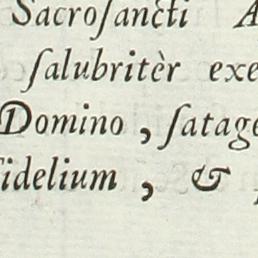 Sacroſancti A
ſalubritèr exe
Domino, ſatage
idelium, &